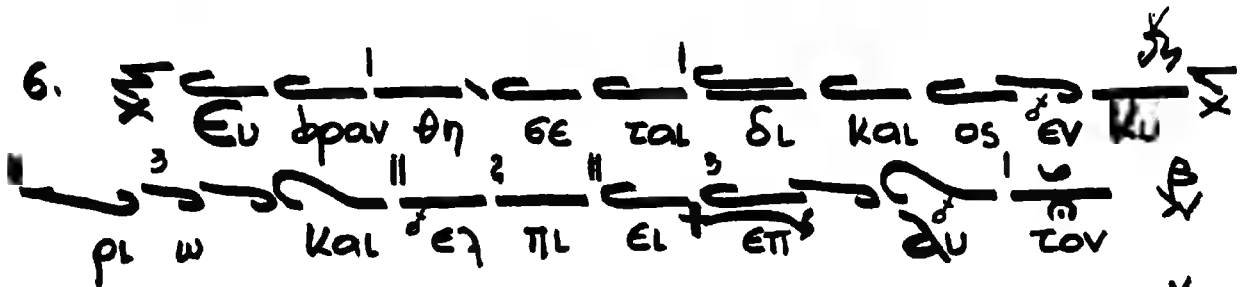 6. Ευ φραν θη σε ται δι και ος εν Κυ
ρι ω και ελ πι ει επ αυ τον